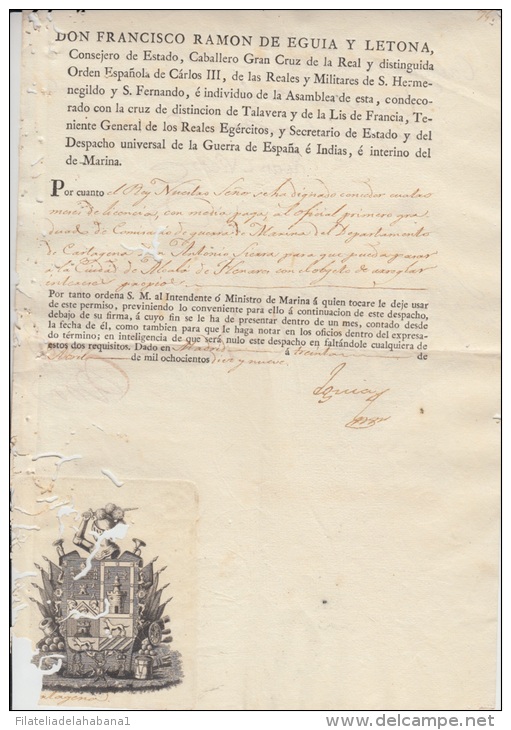 DON FRANCISCO RAMON DE EGUIA Y LETONA,
Consejero de Estado, Caballero Gran Cruz de la Real y distinguida
Orden Española de Cárlos III, de las Reales y Militares de S. Herme-
negildo y S. Fernando, é individuo de la Asamblea de esta, condeco-
rado con la cruz de distincion de Talavera y de la Lis de Francia, Te-
niente General de los Reales Egércitos, y Secretario de Estado y del
Despacho universal de la Guerra de España é Indias, é interino del
de Marina.
Por cuanto el Rey Nuestro Señor se ha dignado conceder cuatro
meses de licencia, con media paga, al oficial primero gra-
duado de Comisario de guerra de Marina del Departamento
de Cartagena Dn. Antonio Sierra para que pueda pasar
á la Ciudad de Alcalá de Henares con el objeto de arreglar
intereses propios
Por tanto ordena S. M. al Intendente ó Ministro de Marina á quien tocare le deje usar
de este permiso, previniendo lo conveniente para ello á continuacion de este despacho,
debajo de su firma, á cuyo fin se le ha de presentar dentro de un mes, contado desde
la fecha de él, como tambien para que le haga notar en los oficios dentro del expresa-
do término; en inteligencia de que será nulo este despacho en faltándole cualquiera de
estos dos requisitos. Dado en Madrid á treinta de
de mil ochocientos diez y nueve.
Eguia
Cartagena
Filateliadelahabana1
www.delcampe.net